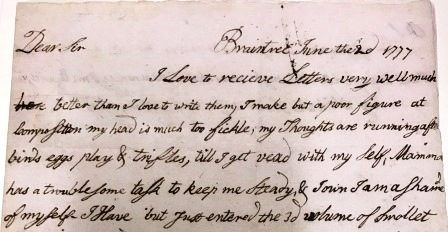 Dear Sir Braintree June the 2d 1777
I Love to recieve Letters very well much
better than I love to write them, I make but a poor figure at
Composition my head is much too fickle, my Thoughts are running after
birds eggs play & trifles, till I get vead with my self, Mamma
has a troublesome task to keep me Steady, & I own I am asham'd
of myself. I Have but Just entered the 3d volume of Smollet